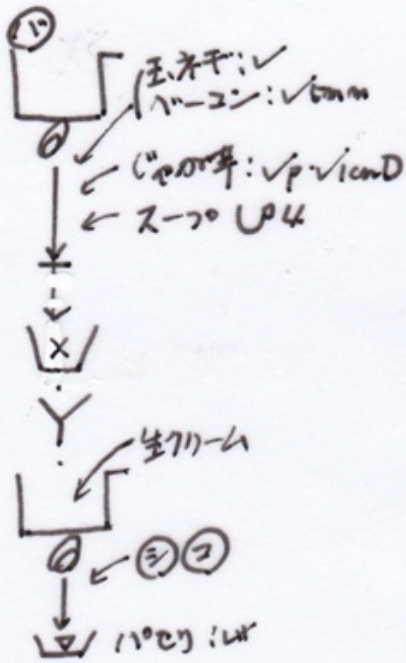 バ
玉ネギ:✓
ベーコン:✓5mm
じゃが芋:✓p・✓1cmD
スープ 4
×
生クリーム
シ コ
パセリ: